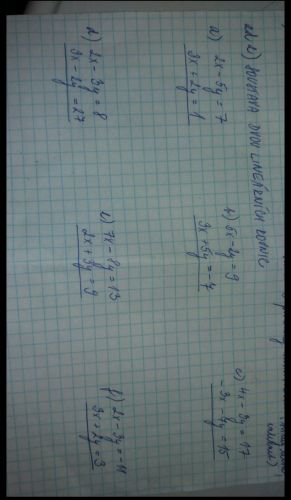 SOUSTAVA DVOU LINEÁRNÍCH ROVNIC
a) 2x - 5y = 7
3x + 2y = 1
b) 5x - 2y = 9
3x + 5y = -7
c) 4x - 3y = 17
-3x - 4y = 15
d) 2x - 3y = 8
3x - 2y = 27
e) 7x - 8y = 13
2x + 3y = 9
f) 2x - 3y = -11
3x + 2y = 3